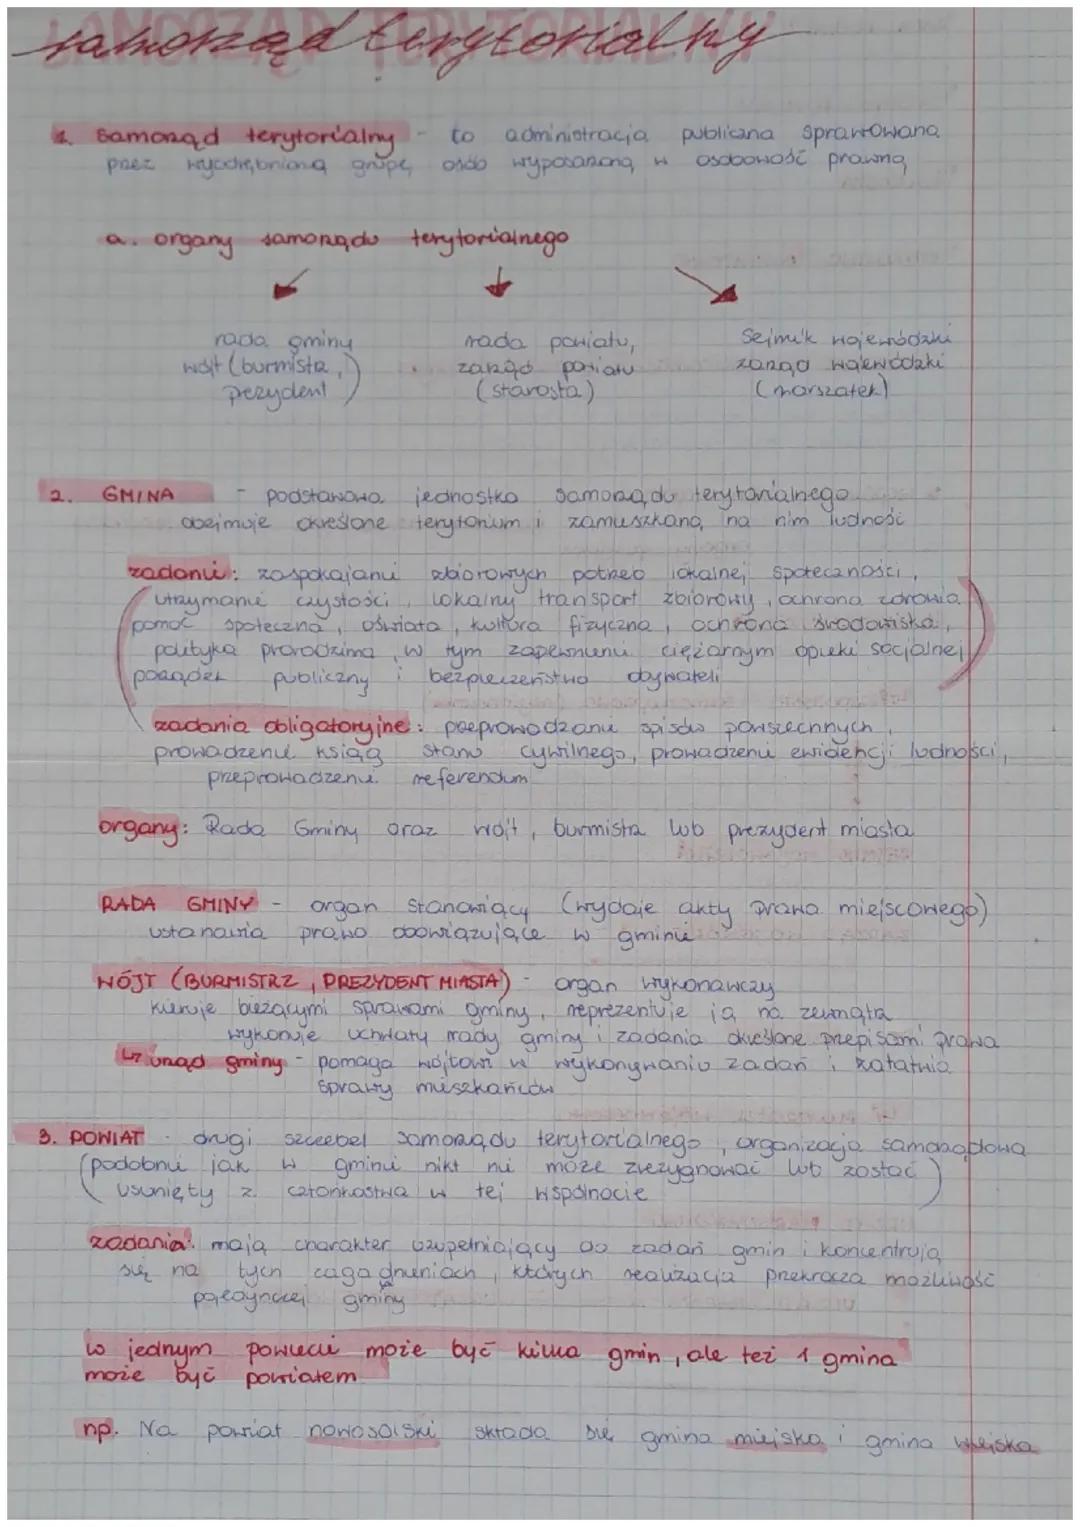 samorząd terytorialny
1. Samorząd terytorialny - to administracja publiczna sprawowana
przez wyodrębnioną grupę osób wyposażoną w osobowość prawną
a. organy samorządu terytorialnego
rada gminy
wójt (burmistrz,
prezydent)
rada powiatu,
zarząd powiatu
(starosta)
Sejmik wojewódzki
zarząd wojewódzki
(marszałek)
2. GMINA - podstawowa jednostka samorządu terytorialnego
obejmuje określone terytorium i zamieszkaną na nim ludność
zadanie: zaspokajanie zbiorowych potrzeb lokalnej społeczności,
(utrzymanie czystości, lokalny transport zbiorowy, ochrona zdrowia,
pomoc społeczna, oświata, kultura fizyczna, ochrona środowiska,
polityka prorodzinna, w tym zapewnienie ciężarnym opieki socjalnej,
porządek publiczny i bezpieczeństwo obywateli)
zadania obligatoryjne: przeprowadzanie spisów powszechnych,
prowadzenie ksiąg stanu cywilnego, prowadzenie ewidencji ludności,
przeprowadzenie referendum
organy: Rada Gminy oraz wójt, burmistrz lub prezydent miasta
RADA GMINY - organ stanowiący (wydaje akty prawa miejscowego)
ustanawia prawo obowiązujące w gminie
WÓJT (BURMISTRZ, PREZYDENT MIASTA) - organ wykonawczy
kieruje bieżącymi sprawami gminy, reprezentuje ją na zewnątrz
wykonuje uchwały rady gminy i zadania określone przepisami prawa
↳ urząd gminy - pomaga wójtowi w wykonywaniu zadań i załatwia
sprawy mieszkańców
3. POWIAT - drugi szczebel samorządu terytorialnego, organizacja samorządowa
(podobnie jak w gminie nikt nie może zrezygnować lub zostać
usunięty z członkostwa w tej wspólnocie)
zadania: mają charakter uzupełniający do zadań gmin i koncentrują
się na tych zagadnieniach, których realizacja przekracza możliwość
pojedynczej gminy
w jednym powiecie może być kilka gmin, ale też 1 gmina
może być powiatem
np. Na powiat nowosolski składa się gmina miejska i gmina wiejska